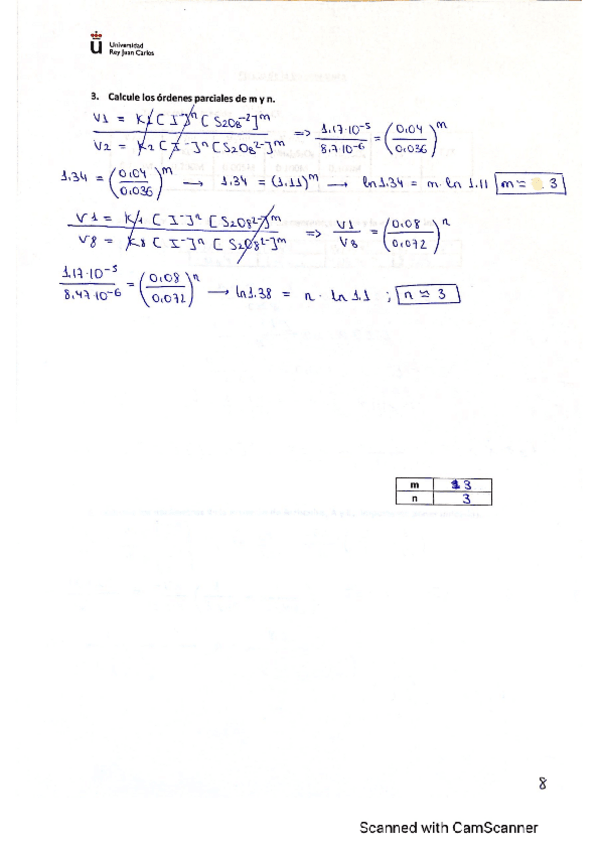 Universidad
Rey Juan Carlos
3. Calcule los órdenes parciales de m y n.
V1 = K1 [I⁻]ⁿ [S2O8⁻²]ᵐ / V2 = K2 [I⁻]ⁿ [S2O8²⁻]ᵐ => 1.17·10⁻⁵ / 8.7·10⁻⁶ = (0.04 / 0.036)ᵐ
1.34 = (0.04 / 0.036)ᵐ → 1.34 = (1.11)ᵐ → ln 1.34 = m · ln 1.11 m ≈ 3
V1 = K1 [I⁻]ⁿ [S2O8²⁻]ᵐ / V8 = K8 [I⁻]ⁿ [S2O8²⁻]ᵐ => V1 / V8 = (0.08 / 0.072)ⁿ
1.17·10⁻⁵ / 8.47·10⁻⁶ = (0.08 / 0.072)ⁿ → ln 1.38 = n · ln 1.1 ; n ≈ 3
m 3
n 3
8
Scanned with CamScanner